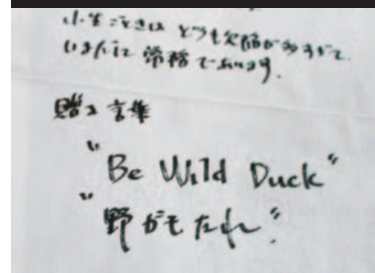 小生ごときは とても欠陥が多すぎて
いまだに 常務であります.
贈る言葉
"Be Wild Duck"
"野がもたれ".